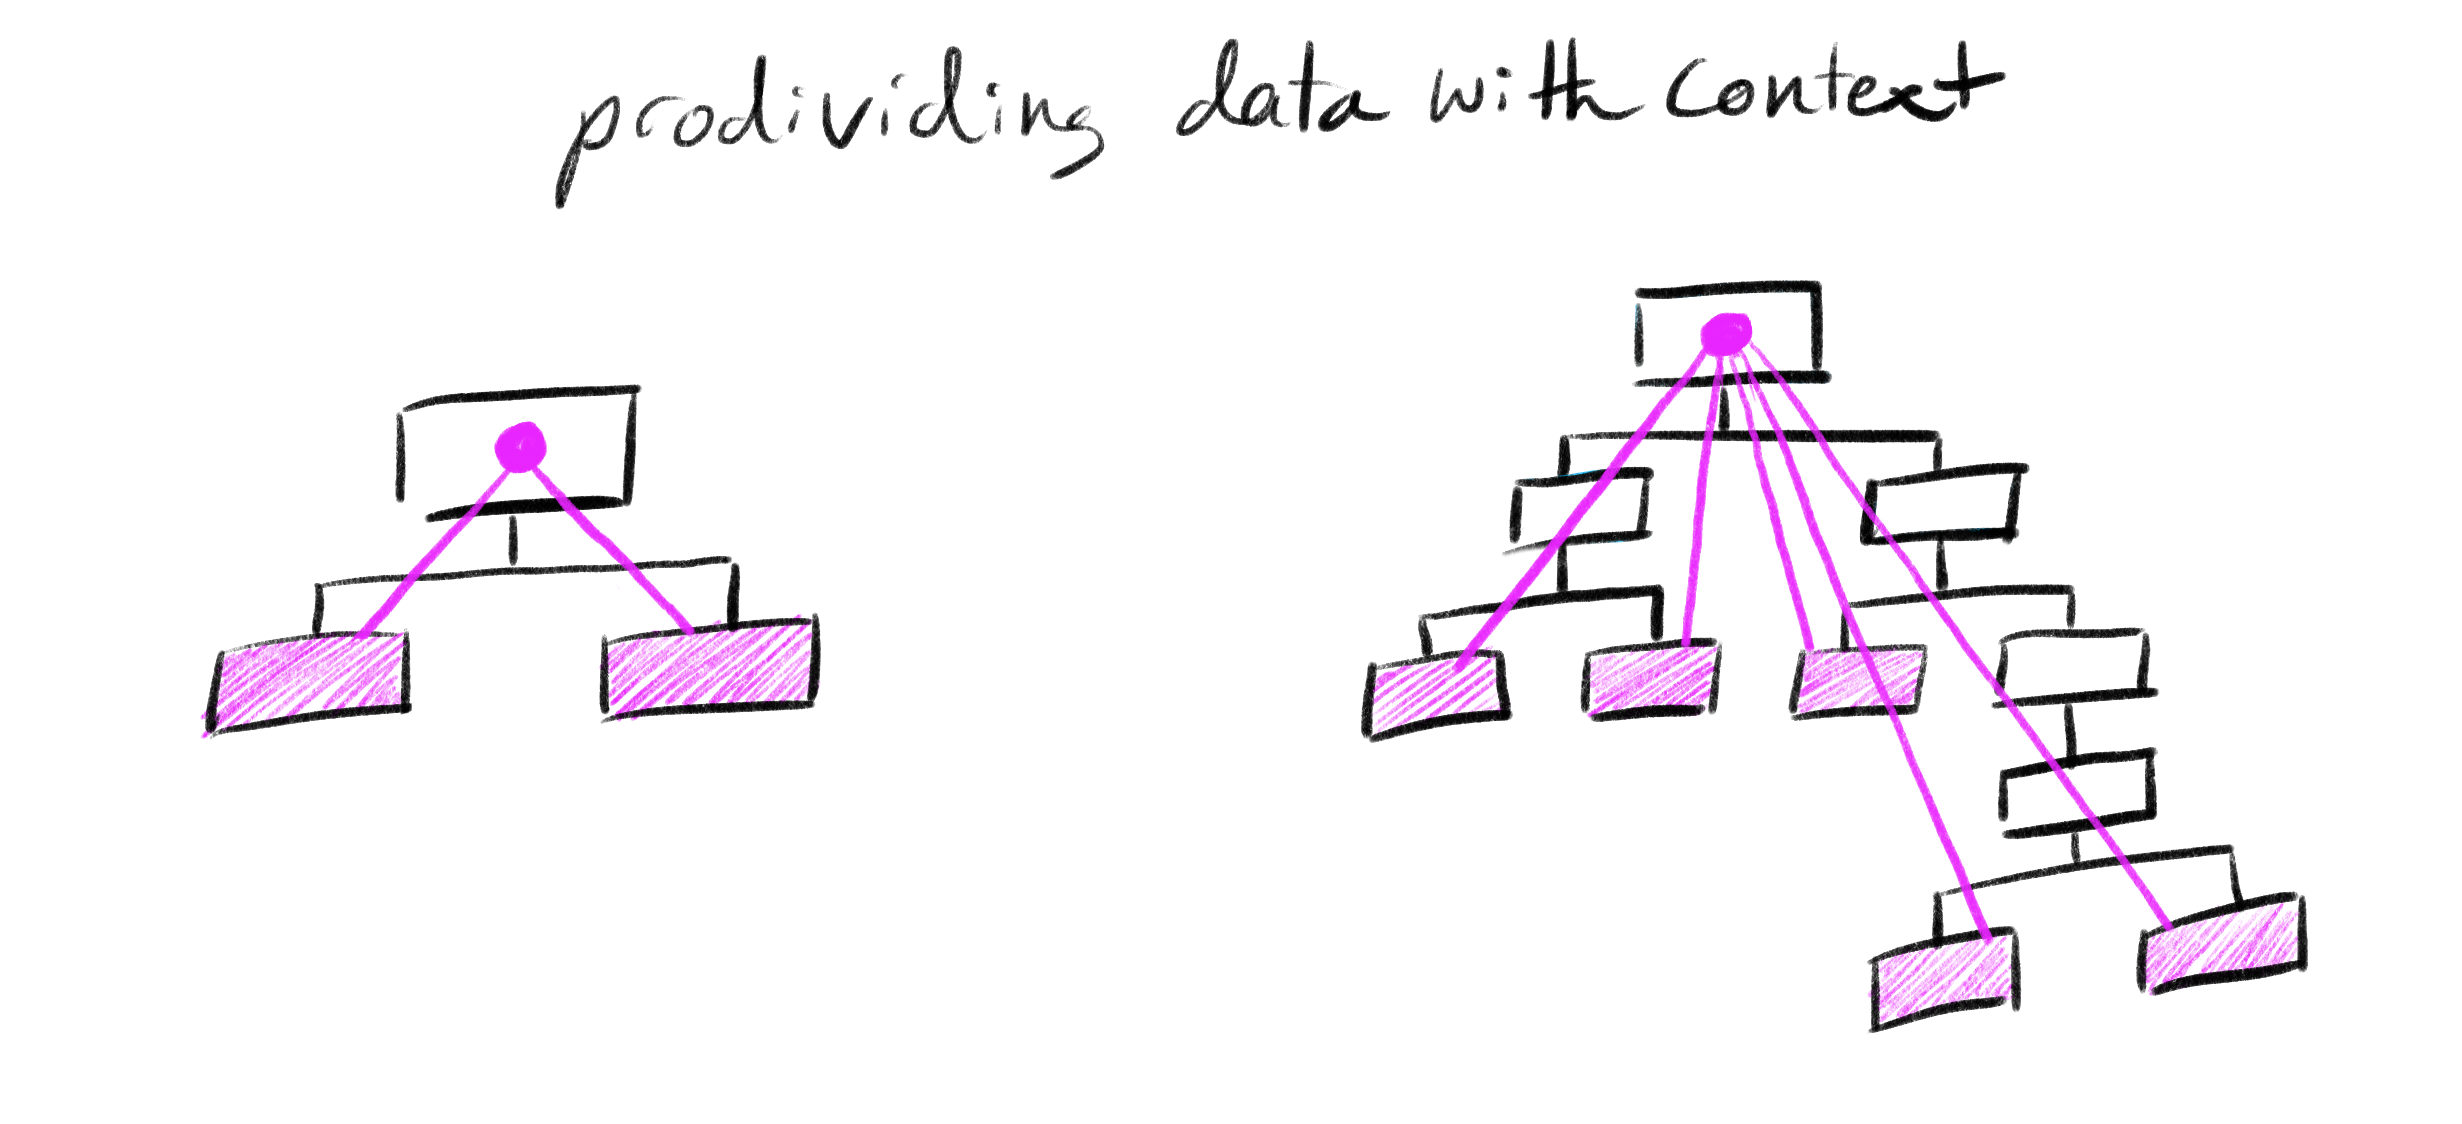 prodividing data with context